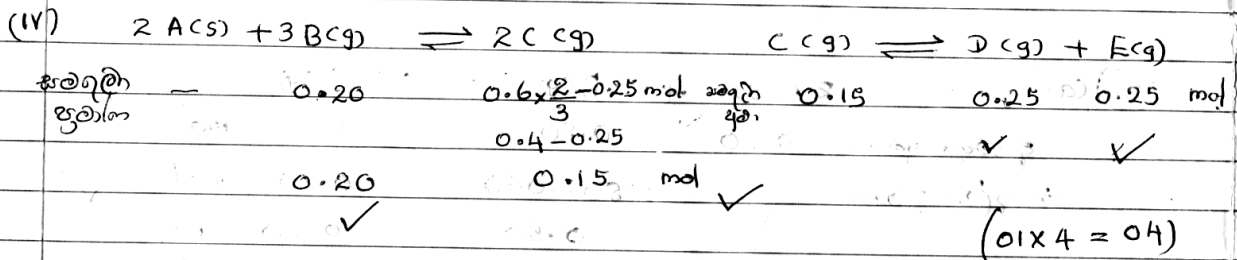 (IV) 2 A(s) + 3 B(g) ⇌ 2 C (g) C (g) ⇌ D (g) + E(g)
සමතුලිත — 0.20 0.6 × 2/3 – 0.25 mol 0.15 0.25 0.25 mol
ප්‍රමාණ
0.4 – 0.25 ✓ ✓
0.20 0.15 mol ✓
✓
(01 × 4 = 04)